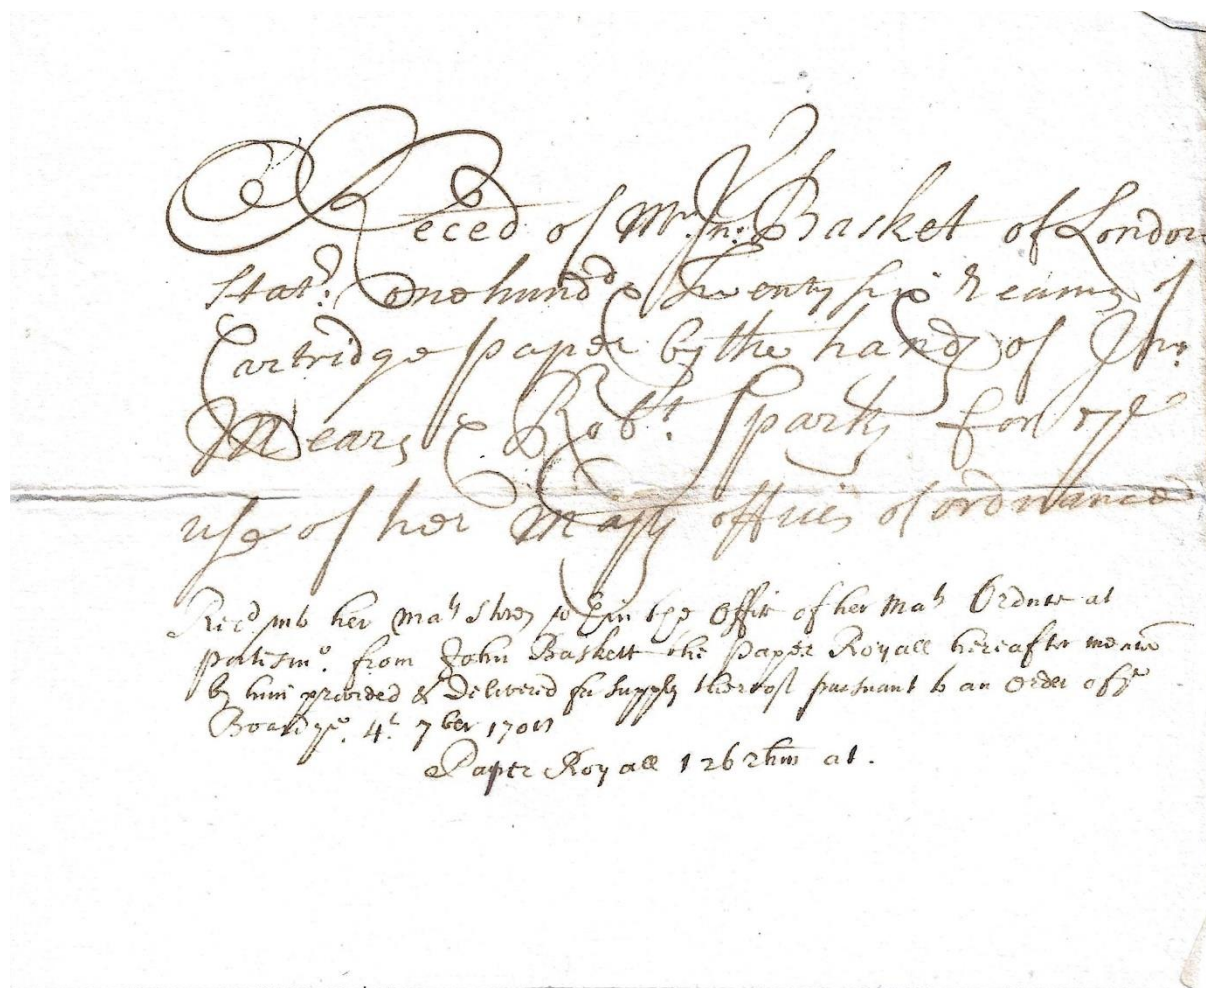 Reced of Mr. Jno. Basket of London
Statr. one hundd & Twenty six Reams of
Cartridge paper by the hands of Jno.
Mears & Robt. Sparks for ye
use of her Majty offices of ordnance
Recd into her Mats Stores within the Office of her Mats Ordnce at
Portsmo. from John Baskett the Paper Royall hereafter
by him provided & Delivered for Supply thereof pursuant to an Order of ye
Board 4t. 7ber
Paper Royall 126 Rms at.